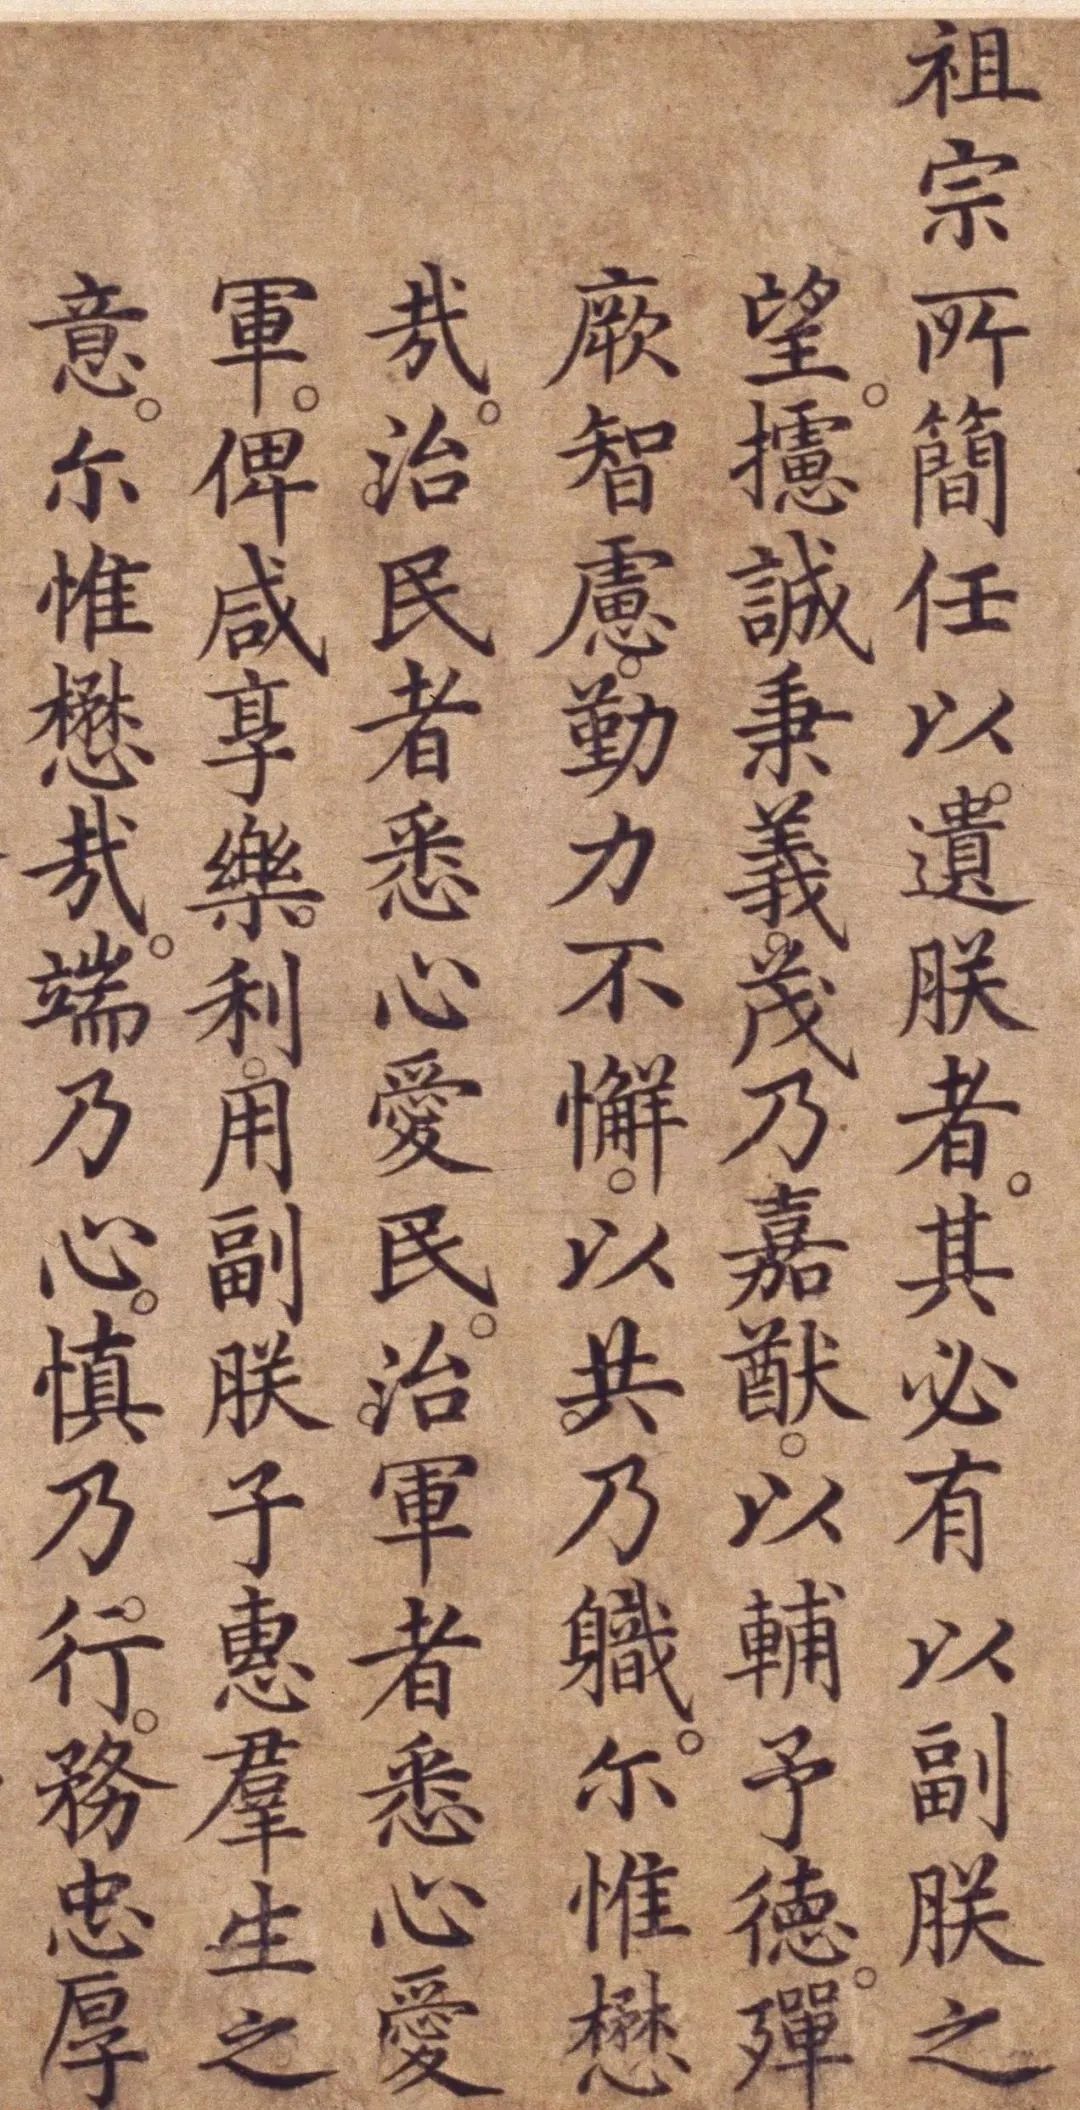 祖宗所簡任以遺朕者。其必有以副朕之
望。攄誠秉義。茂乃嘉猷。以輔予德。殫
厥智慮。勤力不懈。以共乃職。尔惟懋
哉。治民者悉心愛民。治軍者悉心愛
軍。俾咸享樂利。用副朕子惠羣生之
意。尔惟懋哉。端乃心。慎乃行。務忠厚